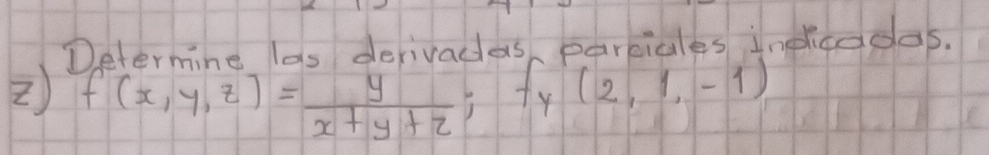 Determine las derivadas parciales indicadas.
z) f(x,y,z) = y/(x+y+z); fy (2,1,-1)